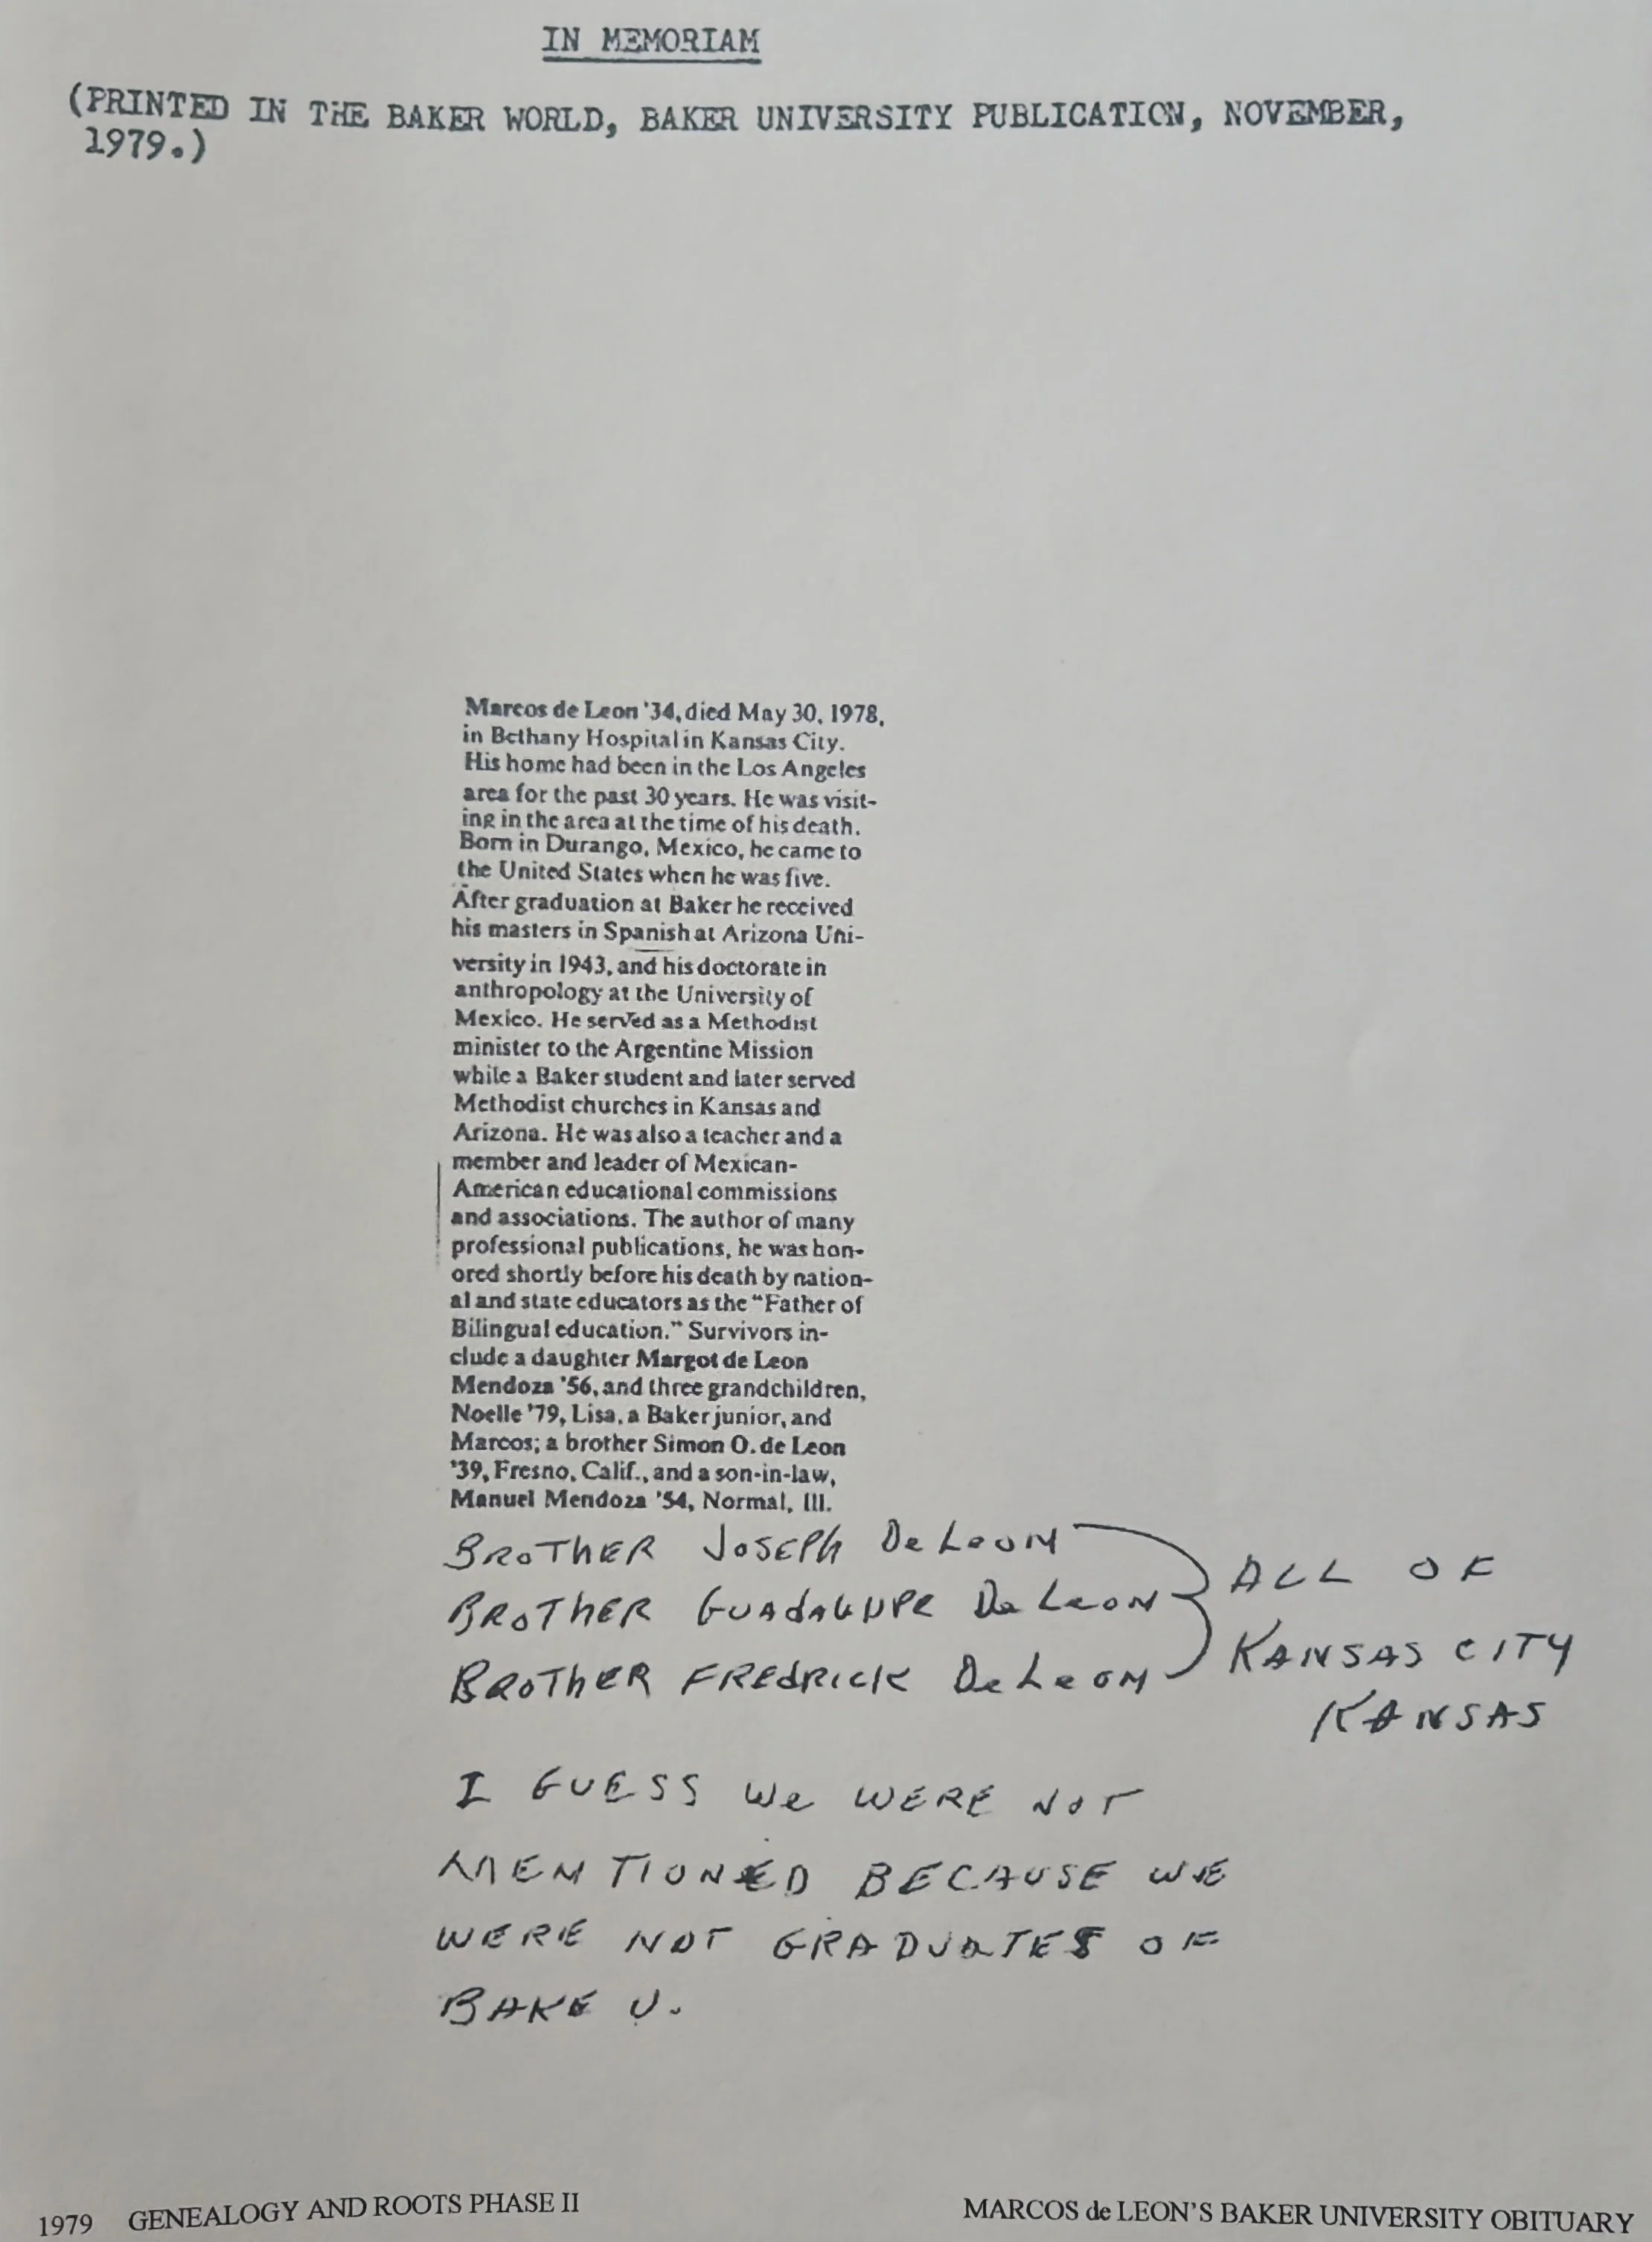 IN MEMORIAM
(PRINTED IN THE BAKER WORLD, BAKER UNIVERSITY PUBLICATION, NOVEMBER,
1979.)
Marcos de Leon '34, died May 30, 1978,
in Bethany Hospital in Kansas City.
His home had been in the Los Angeles
area for the past 30 years. He was visit-
ing in the area at the time of his death.
Born in Durango, Mexico, he came to
the United States when he was five.
After graduation at Baker he received
his masters in Spanish at Arizona Uni-
versity in 1943, and his doctorate in
anthropology at the University of
Mexico. He served as a Methodist
minister to the Argentine Mission
while a Baker student and later served
Methodist churches in Kansas and
Arizona. He was also a teacher and a
member and leader of Mexican-
American educational commissions
and associations. The author of many
professional publications, he was hon-
ored shortly before his death by nation-
al and state educators as the "Father of
Bilingual education." Survivors in-
clude a daughter Margot de Leon
Mendoza '56, and three grandchildren,
Noelle '79, Lisa, a Baker junior, and
Marcos; a brother Simon O. de Leon
'39, Fresno, Calif., and a son-in-law,
Manuel Mendoza '54, Normal, Ill.
BROTHER JOSEPH De LEON
BROTHER GUADALUPE De LEON
BROTHER FREDRICK De LEON
ALL OF
KANSAS CITY
KANSAS
I GUESS We WERE NOT
MENTIONED BECAUSE WE
WERE NOT GRADUATES OF
BAKE U.
1979 GENEALOGY AND ROOTS PHASE II
MARCOS de LEON'S BAKER UNIVERSITY OBITUARY